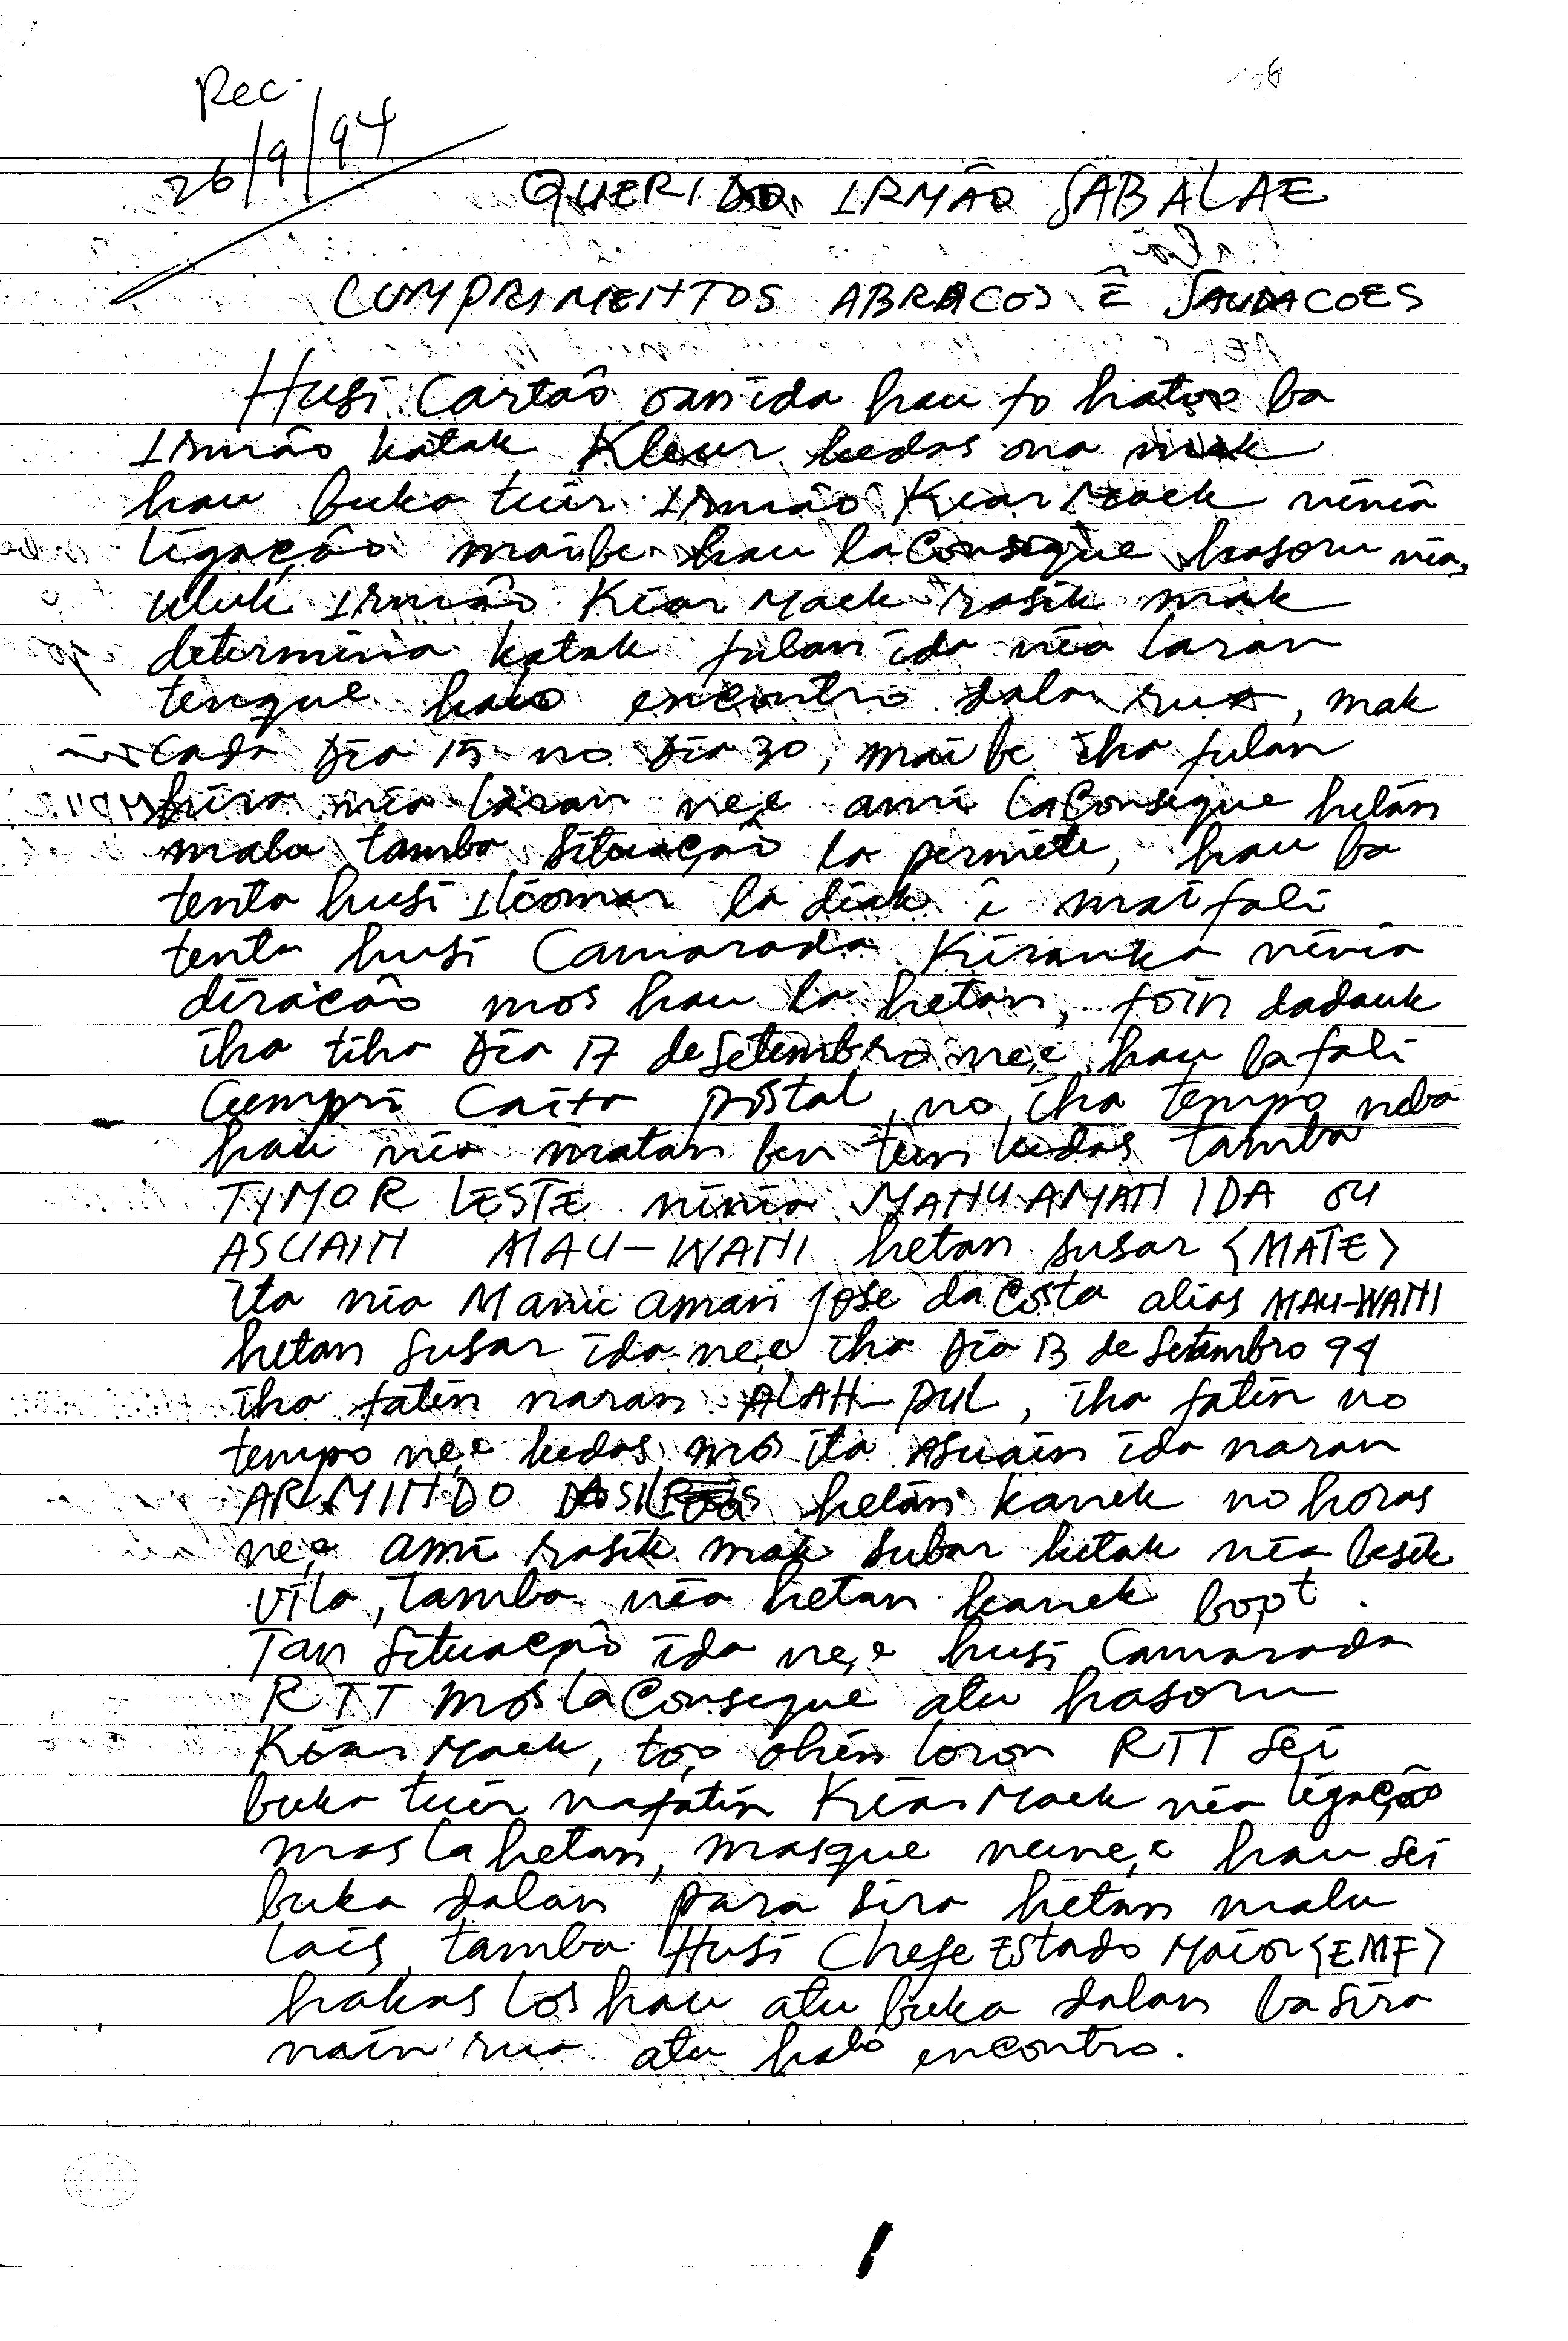 Rec.
26/9/94
QUERIDO IRMÃO SABALAE
CUMPRIMENTOS ABRACOS E SAUDACOES
Husi Cartão oan ida hau fo hatoo ba
Irmão katak Kleur kedas ona mak
hau buka tuir Irmão Kiar Maek ninia
ligação maibe hau la Consegue hasoru nia,
uluk Irmão Kiar Maek rasik mak
determina katak fulan ida nia laran
tenque halo encontro dala rua, mak
Cada Dia 15 no Dia 30, maibe iha fulan
hira nia laran ne,e ami la Consegue hetan
malu tamba Situação la permite, hau ba
tenta husi Iliomar la diak i mai fali
tenta husi Camarada Kiranka ninia
diração mos hau la hetan, foin dadauk
iha Dia 17 de Setembro ne,e hau ba fali
Cumpri Caixa postal, no iha tempo neba
hau nia matan ben tun kedas tamba
TIMOR LESTE ninia MANU AMAN IDA ou
ASUAIN MAU-WANI hetan susar <MATE>
ita nia Manu aman Jose da Costa alias MAU-WANI
hetan susar ida ne,e iha Dia 13 de Setembro 94
iha fatin naran ALAH-PUL, iha fatin no
tempo ne,e kedas mos ita Asuain ida naran
ARMINDO hetan kanek no horas
ne,e ami rasik mak subar hetak nia besik
vila, tamba nia hetan kanek bo,ot.
Tan Situação ida ne,e husi Camarada
RTT mos la Consegue atu hasoru
Kiar Maek, to,o ohin loron RTT sei
buka tuir nafatin Kiar Maek nia ligação
mas la hetan, masque nune,e hau sei
buka dalan para sira hetan malu
lais, tamba Husi Chefe Estado Maior <EMF>
hakas los hau atu buka dalan ba sira
nain rua atu halo encontro.
1